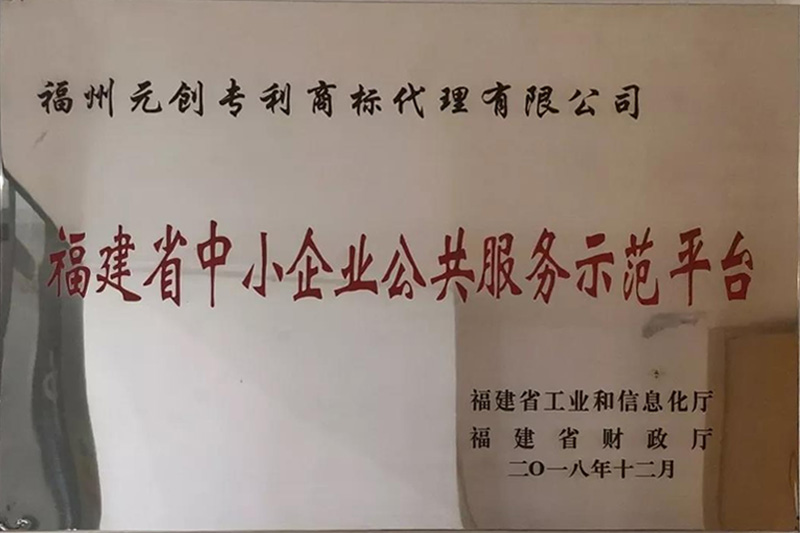 福州元创专利商标代理有限公司
福建省中小企业公共服务示范平台
福建省工业和信息化厅
福建省财政厅
二〇一八年十二月